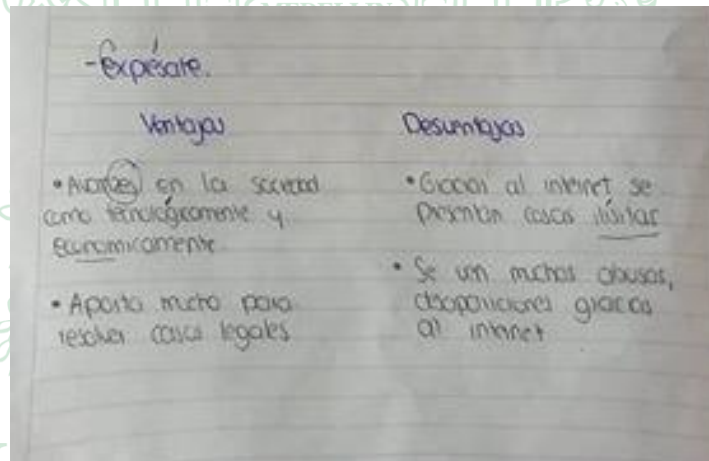 MEDELLIN
-Expésate.
Ventajas
• Avances en la sociedad
como tecnológicamente y
economicamente
• Aporta mucho para
resolver casos legales
Desventajas
• Gracias al internet se
presentan casos ilísitas
• Se ven muchos abusos,
desapariciones gracias
al internet